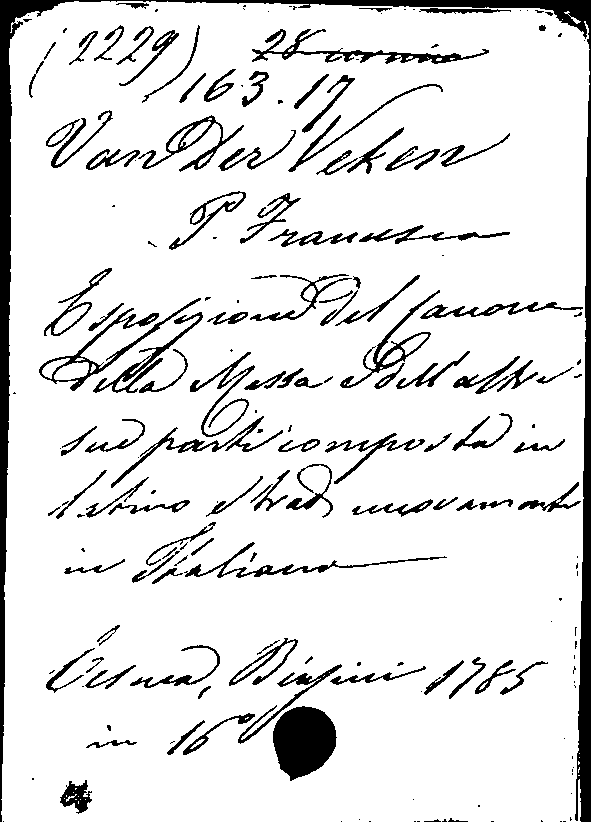 (2229) 28
163.17
Van Der Veken
P. Francesco
Esposizione del Canone
della Messa e dell'altre
sue parti composta in
latino e trad nuovamente
in Italiano
Cesena, Biasini 1785
in 16º